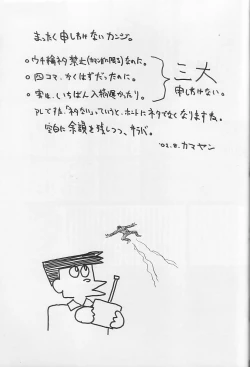 まったく申しわけないカンジ。
○ウチ輪ネタ禁止(カマヤンが困る)なのに。
○四コマ、かくはずだったのに。
○実は、いちばん入稿遅かったり。
三大
申しわけない。
アレですね、「ネタない」っていうと、ホントにネタでなくなりますね。
空白に余韻を残しつつ、サラバ。
'02.8. カマヤン